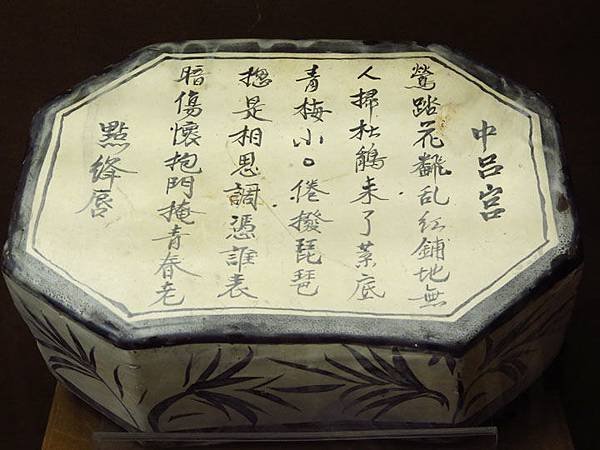 中吕宮
鶯踏花翻乱红鋪地無
人掃杜鵑来了葉底
青梅小〇倦撥琵琶
揔是相思調憑誰表
暗傷懷抱門掩青春老
點绛唇